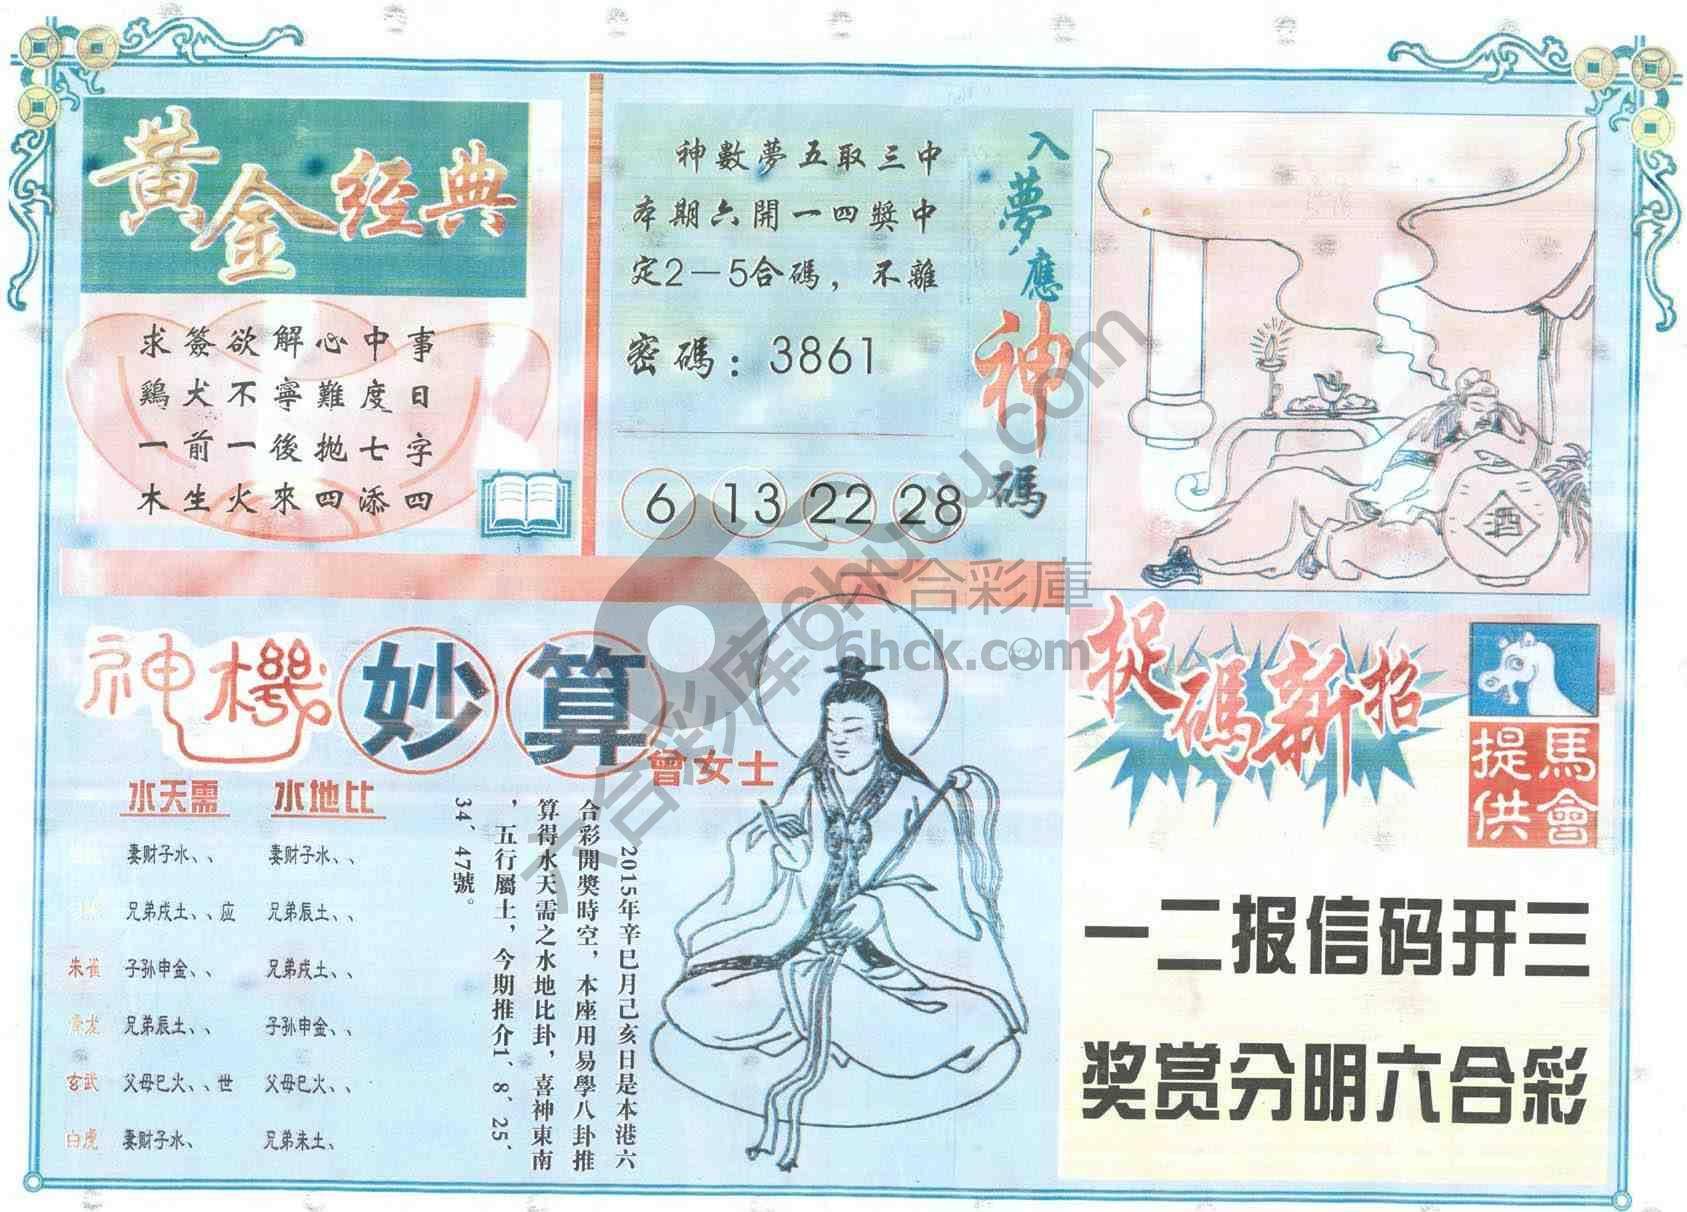 黃金经典
求簽欲解心中事
鷄犬不寧難度日
一前一後抛七字
木生火來四添四
神數夢五取三中
本期六開一四獎中
定2－5合碼，不離
密碼：3861
6 13 22 28
入夢應神碼
酒
神機妙算
曾女士
水天需 水地比
妻财子水、、 妻财子水、、
兄弟戌土、、应 兄弟辰土、、
朱雀 子孙申金、、 兄弟戌土、、
青龙 兄弟辰土、、 子孙申金、、
玄武 父母巳火、、世 父母巳火、、
白虎 妻财子水、 兄弟未土、
2015年辛巳月己亥日是本港六
合彩開獎時空，本座用易學八卦推
算得水天需之水地比卦，喜神東南
，五行屬土，今期推介1、8、25、
34、47號。
捉碼新招
馬會提供
一二报信码开三
奖赏分明六合彩
六合彩库6huw.com
六合彩庫
6hck.com